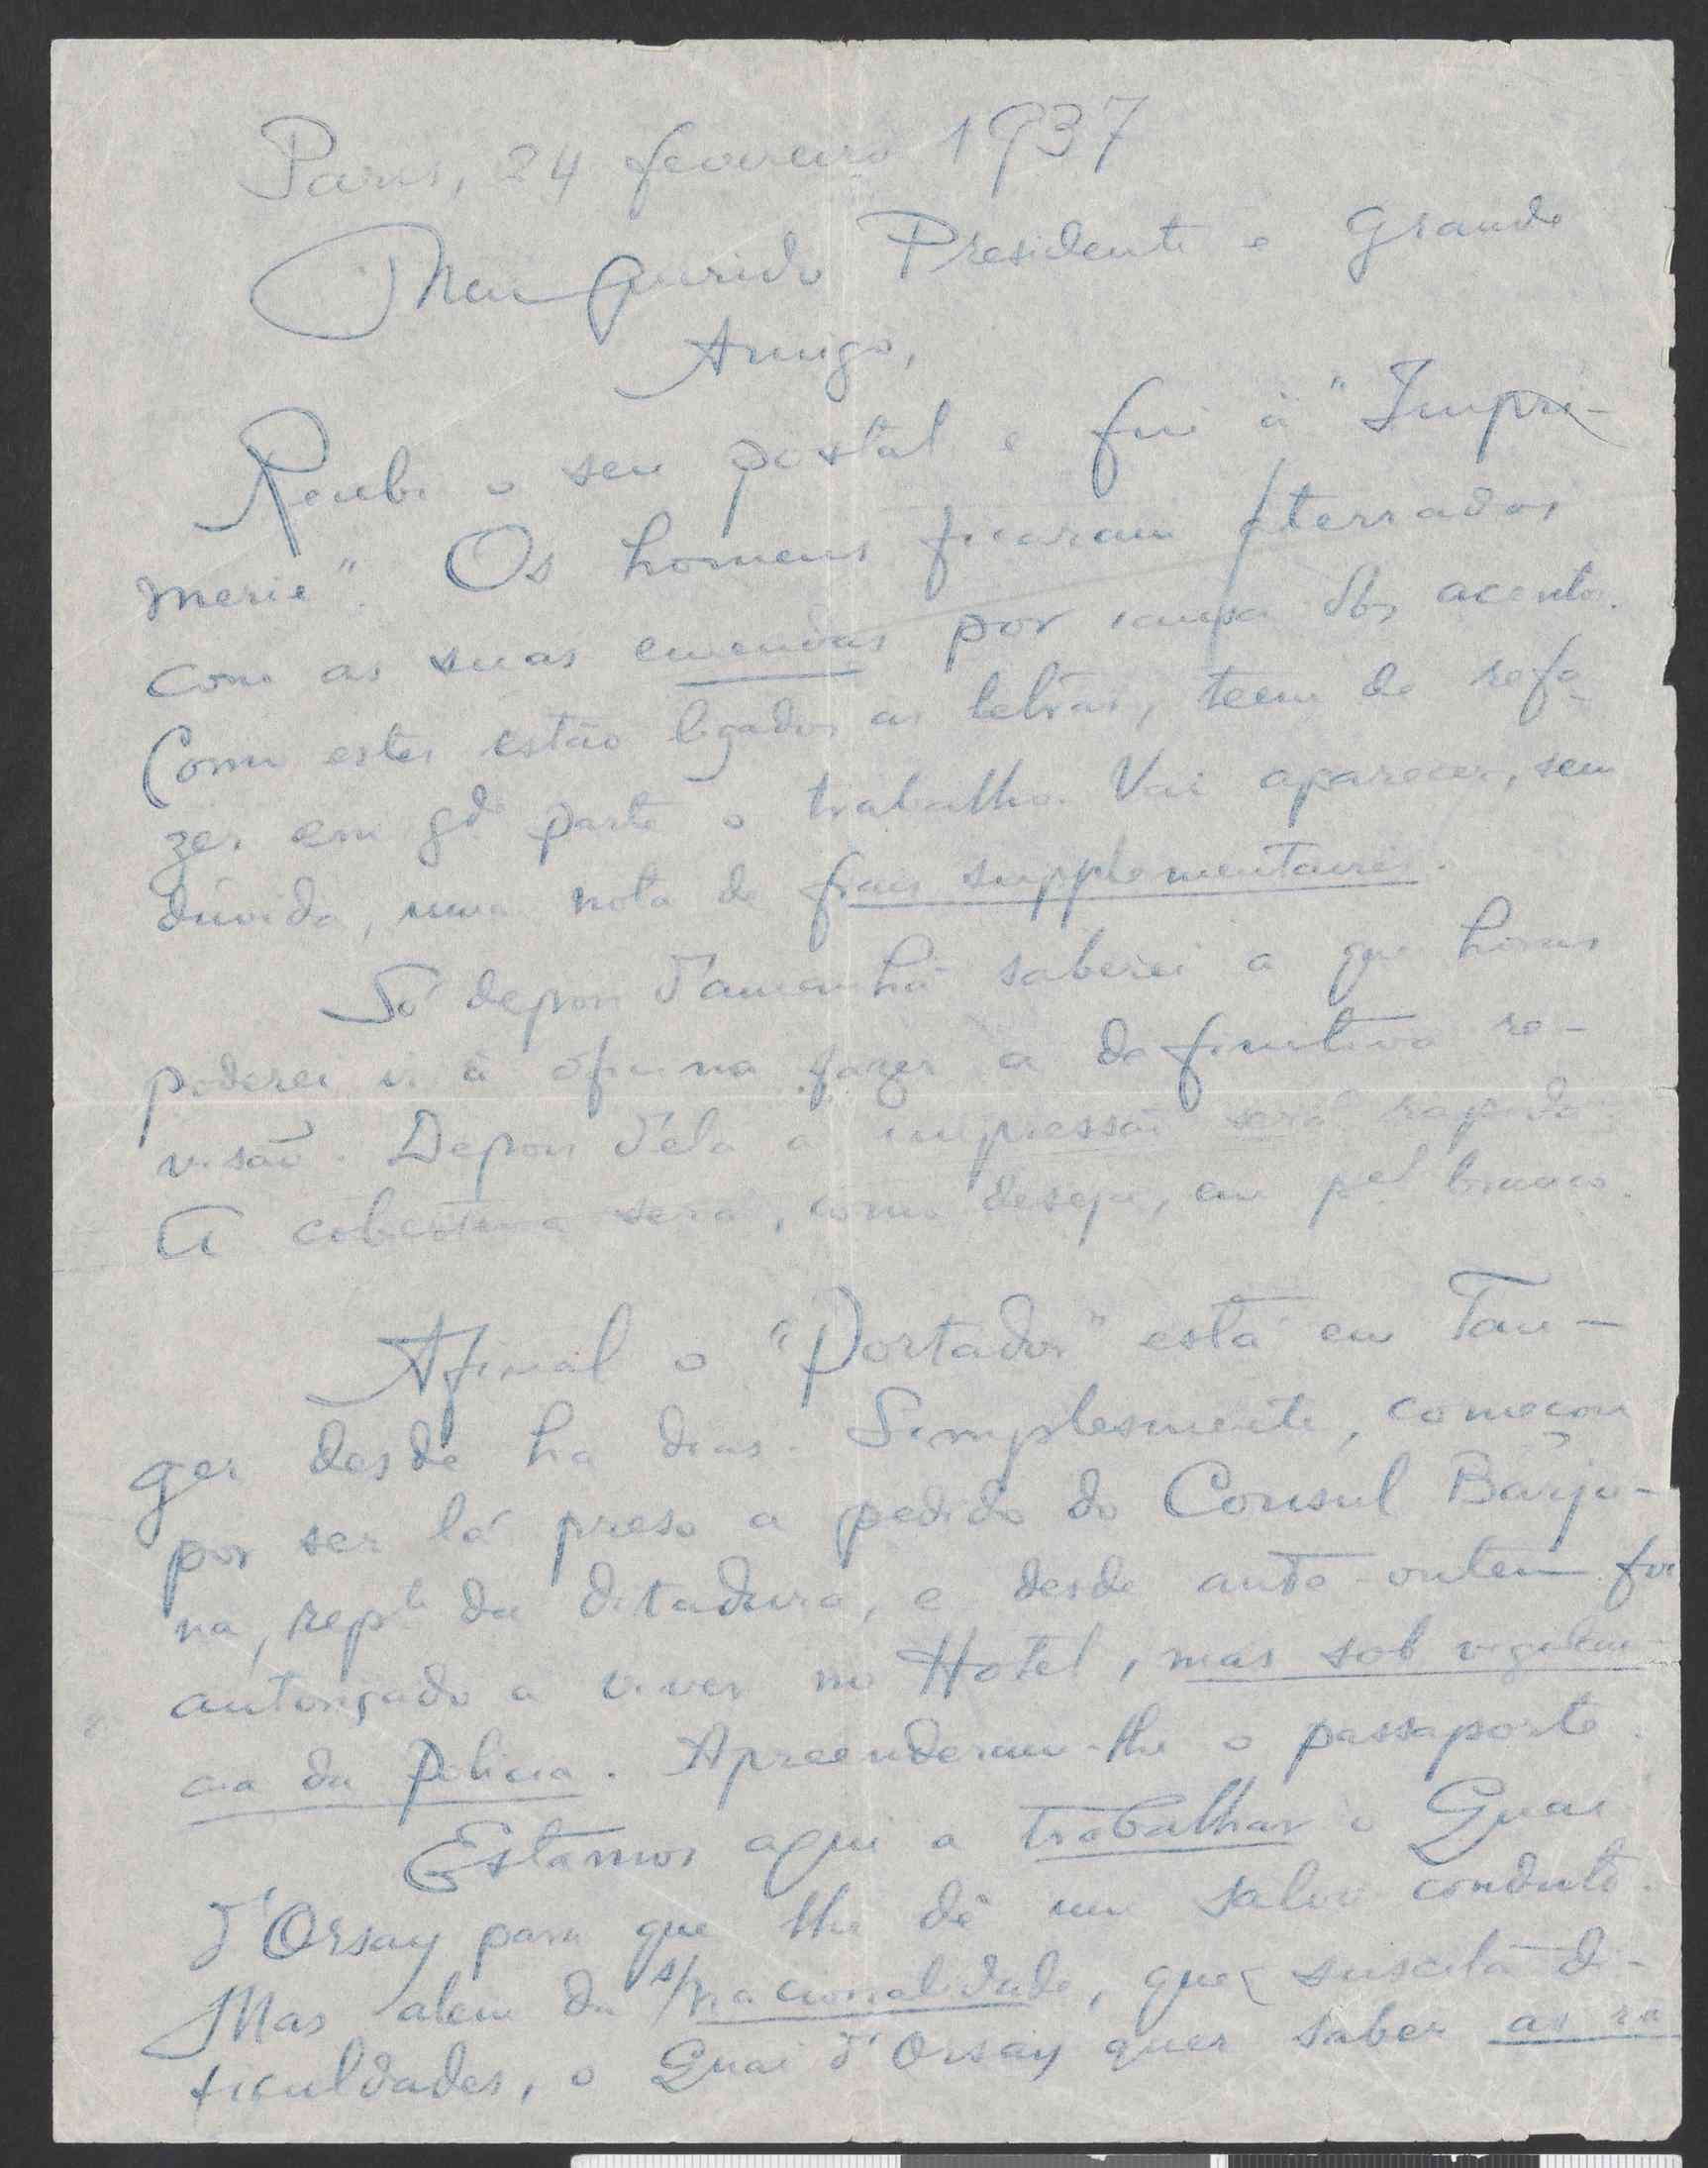 Paris, 24 fevereiro 1937
Meu querido Presidente e grande
Amigo,
Recebi o seu postal e fui à "Impri-
merie". Os homens ficaram aterrados
com as suas emendas por causa dos acentos.
Como estes estão ligados as letras, teem de refa-
zer em gde parte o trabalho. Vai aparecer, sem
dúvida, uma nota de frais supplementaires.
Só depois d'amanhã saberei a que horas
poderei ir à oficina fazer a definitiva re-
visão. Depois d'ela a impressão será rapida.
A cobertura será, como deseja, em pel branco.
Afinal o "Portador" está em Tan-
ger desde ha dias. Simplesmente, começou
por ser lá preso a pedido do Consul Barjo-
na, repte da ditadura, e desde ante-ontem foi
autorisado a viver no Hotel, mas sob vigilan-
cia da Policia. Apreenderam-lhe o passaporte.
Estamos aqui a trabalhar o Quai
d'Orsay para que lhe dê um salvo conduto.
Mas alem da s/nacionalidade, que suscita di-
ficuldades, o Quai d'Orsay quer saber as ra